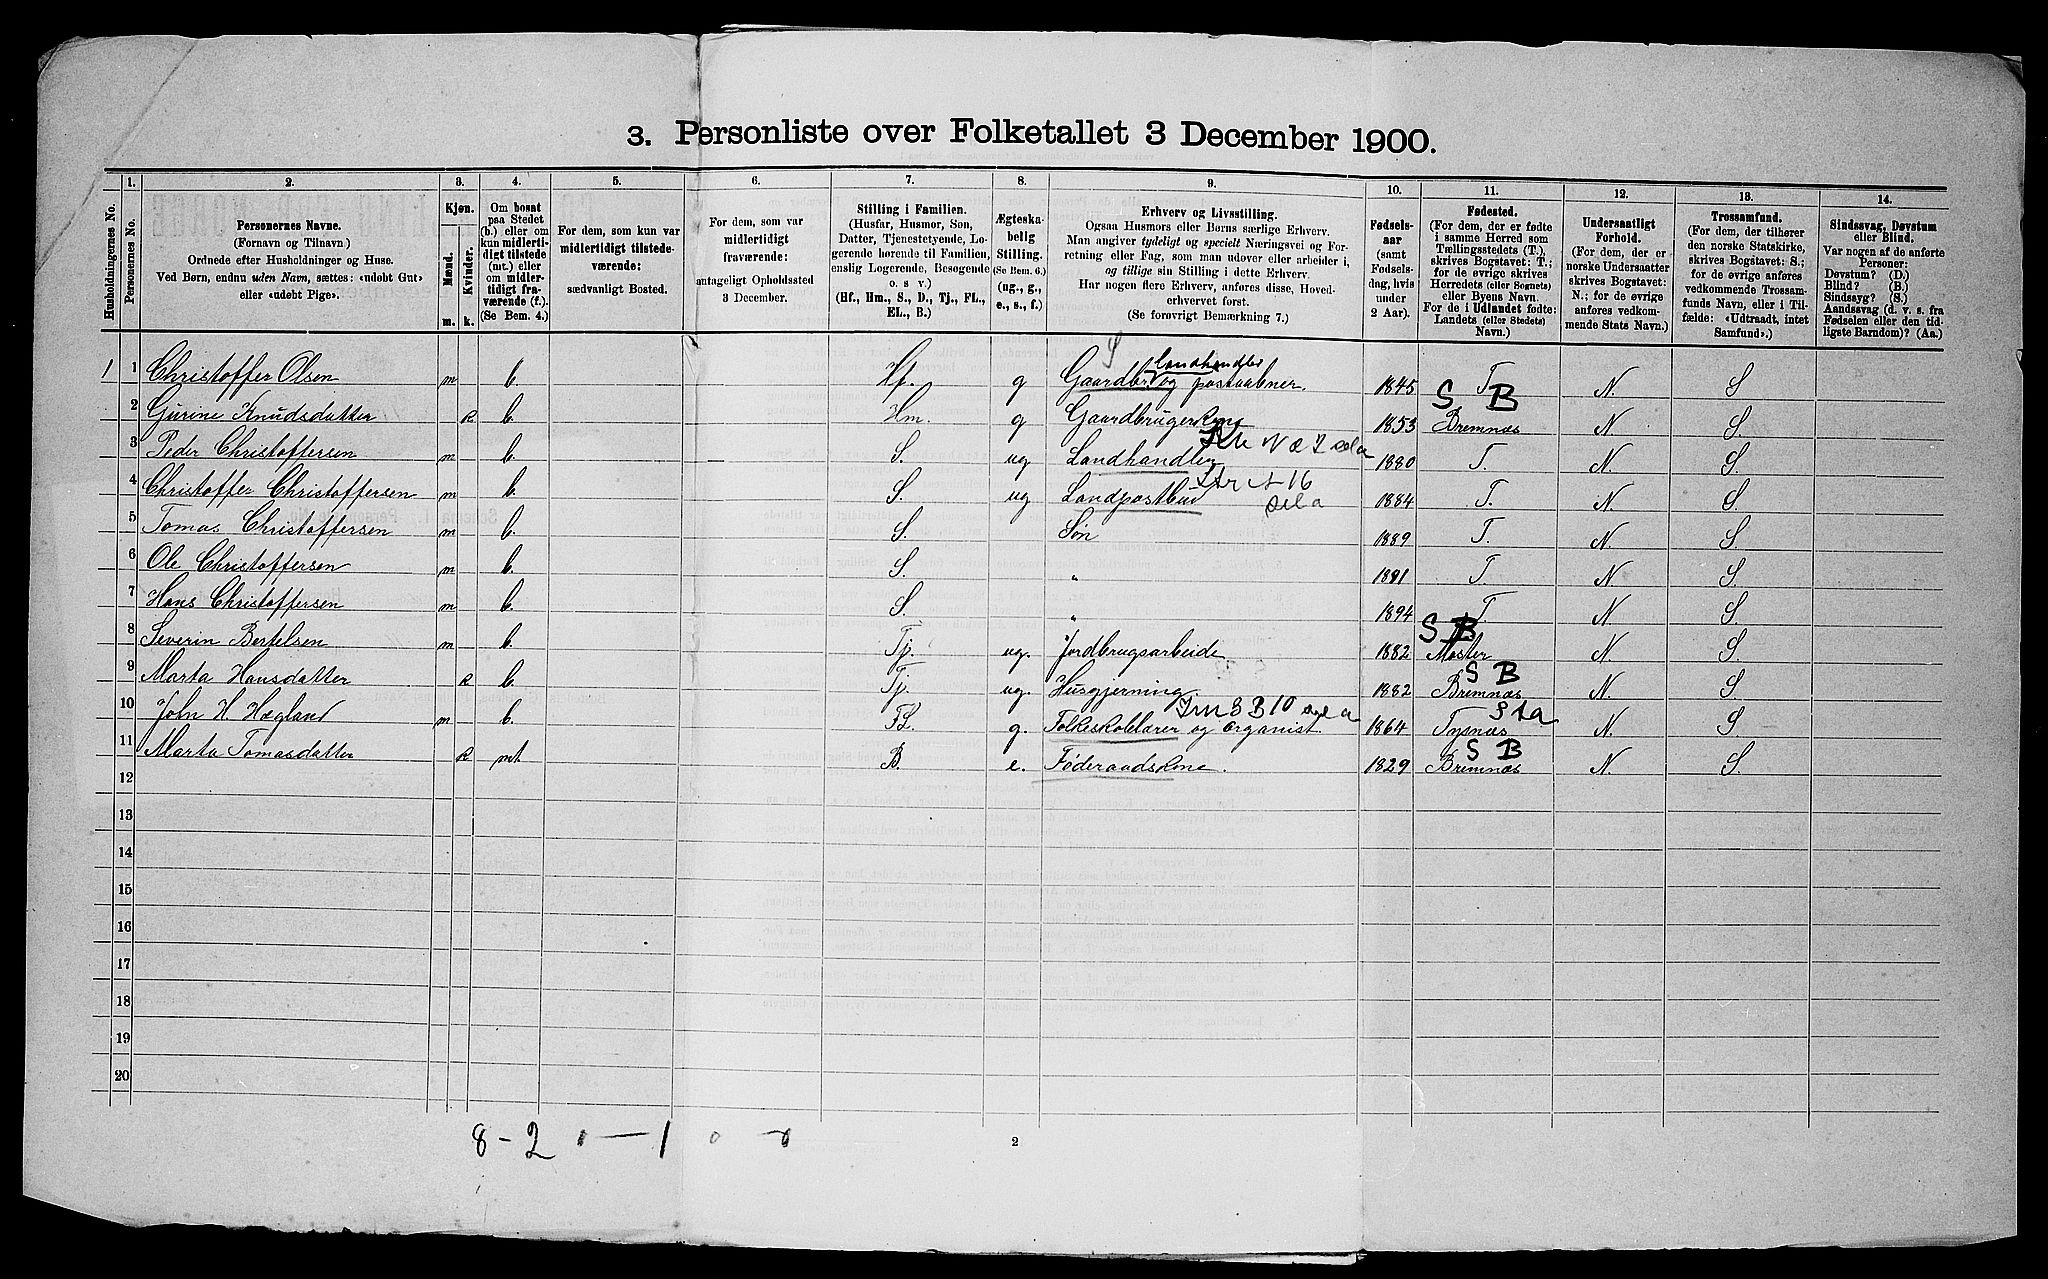 3. Personliste over Folketallet 3 December 1900.
1. 2. 3. 4. 5. 6. 7. 8. 9. 10. 11. 12. 13. 14.
Husholdningernes No.
Personernes No.
Personernes Navne.
(Fornavn og Tilnavn.)
Ordnede efter Husholdninger og Huse.
Ved Børn, endnu uden Navn, sættes: «udøbt Gut»
eller «udøbt Pige».
Kjøn.
Mænd.
Kvinder.
m. k.
Om bosat
paa Stedet
(b.) eller om
kun midlerti-
digt tilstede
(mt.) eller
om midler-
tidigt fra-
værende (f.).
(Se Bem. 4.)
For dem, som kun var
midlertidigt tilstede-
værende:
sædvanligt Bosted.
For dem, som var
midlertidigt
fraværende:
antageligt Opholdssted
3 December.
Stilling i Familien.
(Husfar, Husmor, Søn,
Datter, Tjenestetyende, Lo-
gerende hørende til Familien,
enslig Logerende, Besøgende
o. s v.)
(Hf., Hm., S., D., Tj., FL.,
EL., B.)
Ægteska-
belig
Stilling.
(Se Bem. 6.)
(ug., g.,
e., s., f.)
Erhverv og Livsstilling.
Ogsaa Husmors eller Børns særlige Erhverv.
Man angiver tydeligt og specielt Næringsvei og For-
retning eller Fag, som man udøver eller arbeider i,
og tillige sin Stilling i dette Erhverv.
Har nogen flere Erhverv, anføres disse, Hoved-
erhvervet først.
(Se forøvrigt Bemærkning 7.)
Fødsels-
aar
(samt
Fødsels-
dag, hvis
under
2 Aar).
Fødested.
(For dem, der er fødte
i samme Herred som
Tællingsstedets (T.),
skrives Bogstavet: T.;
for de øvrige skrives
Herredets (eller Sognets)
eller Byens Navn.
For de i Udlandet fødte:
Landets (eller Stedets)
Navn.)
Undersaatligt
Forhold.
(For dem, der er
norske Undersaatter
skrives Bogstavet:
N.; for de øvrige
anføres vedkom-
mende Stats Navn.)
Trossamfund.
(For dem, der tilhører
den norske Statskirke,
skrives Bogstavet: S.;
for de øvrige anføres
vedkommende Trossam-
funds Navn, eller i Til-
fælde: «Udtraadt, intet
Samfund».)
Sindssvag, Døvstum
eller Blind.
Var nogen af de anførte
Personer:
Døvstum? (D.)
Blind? (B.)
Sindssyg? (S.)
Aandssvag (d. v. s. fra
Fødselen eller den tid-
ligste Barndom)? (Aa.)
S Landhandler
1 1 Christoffer Olsen m b. Hf. g Gaardbr. og postaabner. 1845 T. N. S
S B
2 Gurine Knudsdatter k b. Hm. g Gaardbrugerkone 1853 Bremnæs N. S.
3 Peder Christoffersen m b. S. ug Landhandler 1880 T. N. S.
4 Christoffer Christoffersen m b. S. ug Landpostbud 16 1884 T. N. S.
5 Tomas Christoffersen m b. S. Søn 1889 T. N. S
6 Ole Christoffersen m b. S. " 1891 T. N S.
7 Hans Christoffersen m b. S. " 1894 T. N S.
S B
8 Severin Bertelsen m b. Tj. ug. Jordbrugsarbeide 1882 Moster N. S.
S B
9 Marta Hansdatter k b. Tj. ug. Husgjerning 1882 Bremnæs N. S.
10 John H. Hægland m b. FL. g. Folkeskolelærer og Organist. 1864 Tysnæs N. S.
S B
11 Marta Tomasdatter k mt. B. e. Føderaadskone. 1829 Bremnæs N. S.
12
13
14
15
16
17
18
19
20
8 - 2 0 — 1 0 - 0
2